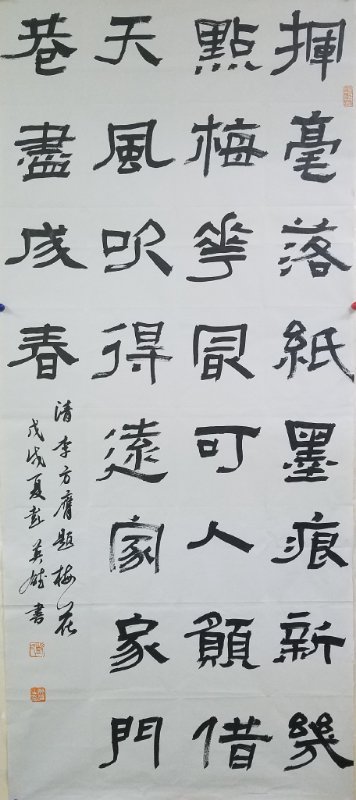 揮毫落紙墨痕新幾
點梅華最可人願借
天風吹得遠家家門
巷盡成春
清李方膺題梅花
戊戌夏彭英書